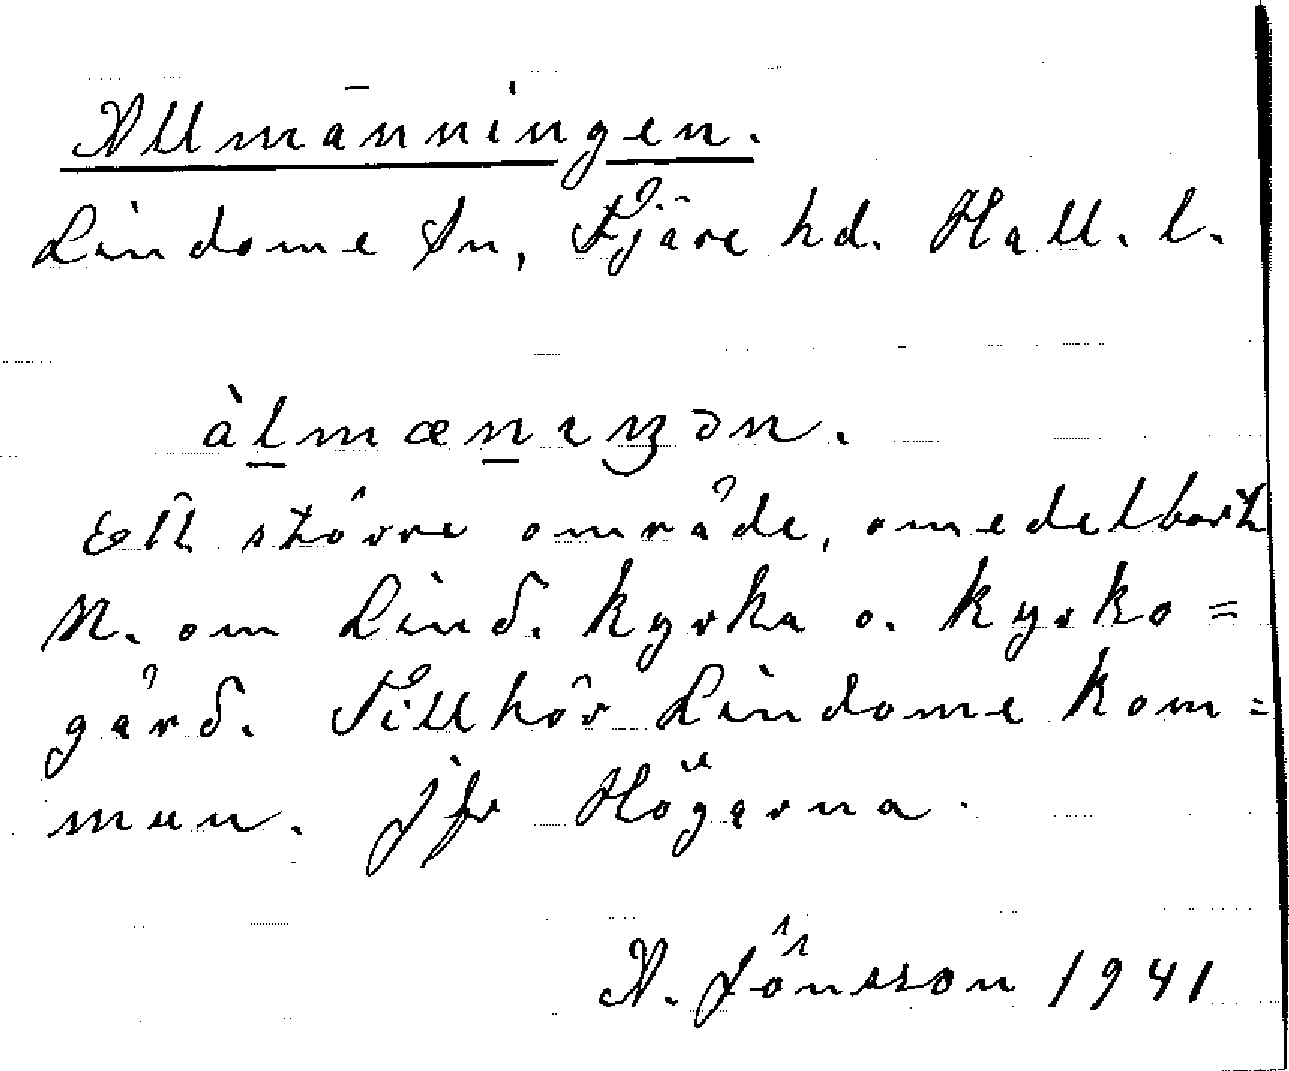 Allmänningen.
Lindome sn, Fjäre hd. Hall. l.
àlmænıŋən.
Ett större område, omedelbart
N. om Lind. kyrka o. kyrko=
gård. Tillhör Lindome kom=
mun. Jfr Högarna.
A. Jönsson 1941